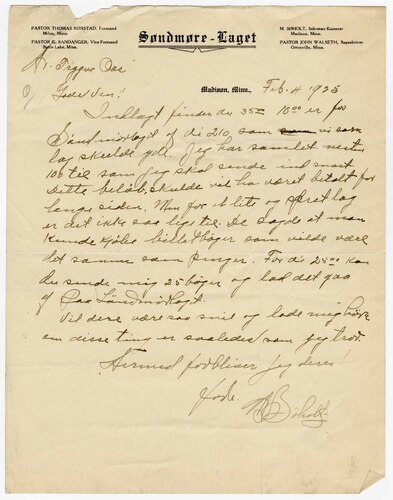 PASTOR THOMAS RORSTAD, Formand
Milan, Minn.
PASTOR G. SANDANGER, Vice Formand
Battle Lake, Minn.
Søndmøre-Laget
M. BØHOLT, Sekretær-Kasserer
Madison, Minn.
PASTOR JOHN WALSETH, Sagaskriver
Ortonville, Minn.
Madison, Minn., Feb. 4 1925
Hr. Trygve Oas
Gode Ven!
Indlagt finder du 35.00 10.00 er for
Søndmørlaget af di 210 som vi som
lag skulde gill. Jeg har samlet nesten
100 til som jeg skal sende ind snart
Dette beløb skulde vel ha været betalt for
lenge siden. Men for et lite og spret lag
er det ikke saa lige til. De sagde at man
kunde kjøbe billetbøger som vilde være
det samme som penger. For di 25.00 kan
du sende mig 25 bøger og lad det gaa
Søndmørlaget
Vil dere være saa snil og lade mig høre
om disse ting er saaledes som jeg tror.
Hermed forbliver jeg deres
M Bøholt